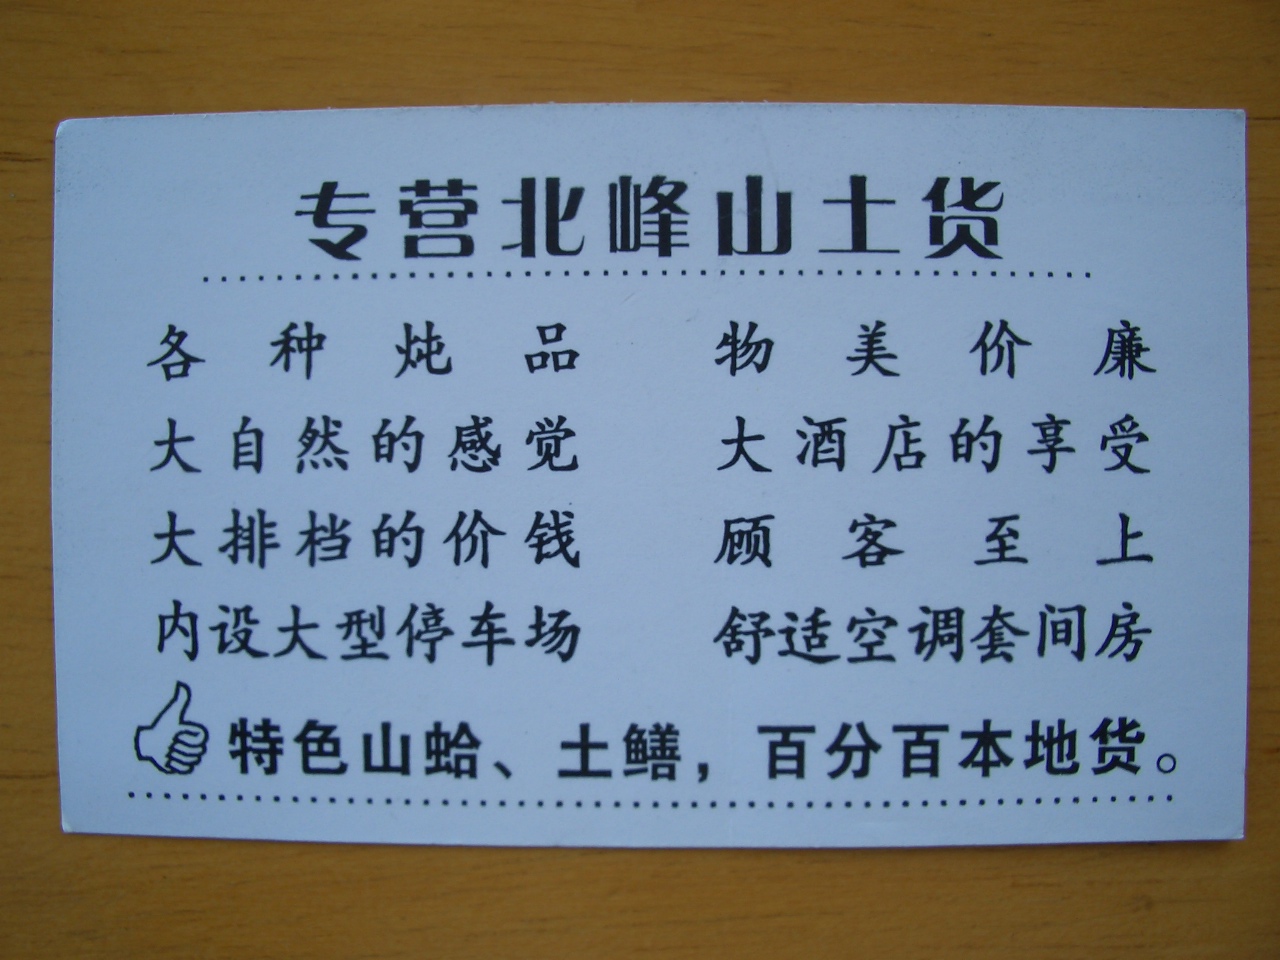 专营北峰山土货
各种炖品 物美价廉
大自然的感觉 大酒店的享受
大排档的价钱 顾客至上
内设大型停车场 舒适空调套间房
特色山蛤、土鳝，百分百本地货。